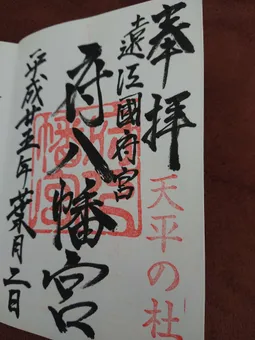 奉拝
天平の杜
遠江國府宮
府八幡宮
平成廿五年 月二日